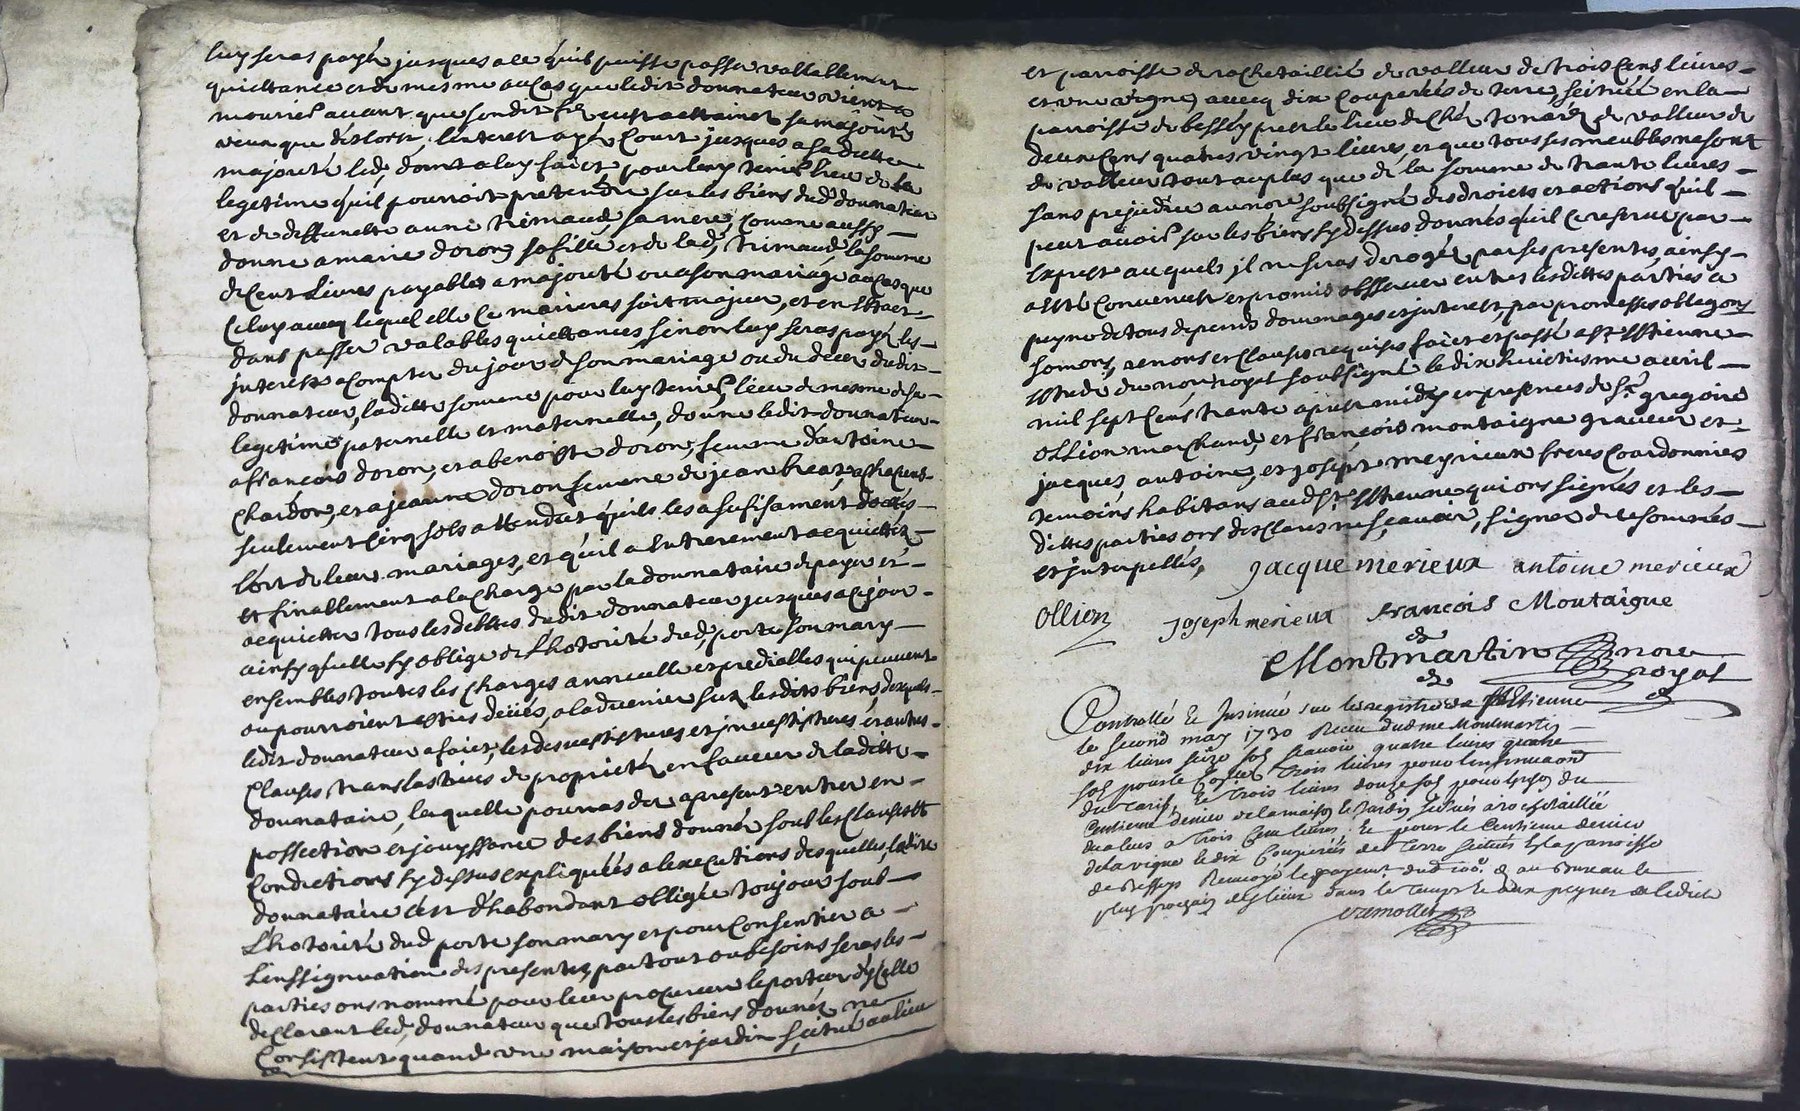 luy seras payée jusques a ce quil puisse passer vallablement
quiettance et de mesme au cas que ledit donnateur vient a
mourir avant que sondit fils eust attainct sa majorité
veux que deslors linterest aye court jusques a sa ditte
majorité led. donnt a luy faict pour luy tenir lieu de la
legetime quil pourroit pretendre sur les biens dud. donnateur
et de deffunette anne trimaud, sa mere, comme aussy
donne a marie doron sa fille et de lad. trimaud, la somme
de cent livres payables a majorité ou a son mariage au cas que
celuy avecq lequel elle ce marieras soit majeur, et en estaet
dans passer valables quiettances sinon luy seras payé les
interest a compter du jour de son mariage ou du deces dudit
donnateur, laditte somme pour luy tenir lieu de mesme de sa
legetime paternelle et maternelle, donne ledit donnateur
a francois doron, et a benoiste doron, femme dantoine
chardon, et a jeanne doron femme de jean
seulement cinq sols attendut quils les a sufisament dottés
lors de leur mariages, et quil a entierement acquiettez
et finallement a la charge par la donnataire de payer et
acquietter tous les debtes dudit donnateur jusques a ce jour
ainsy quelle sy oblige de lhotorité dud. porte son mary
ensembles toutes les charges annuelle et predialles qui peuvent
ou pourroient estres deües, a ladvenier sur lesdits biens, desquels
ledit donnateur a faict, les desvestistures et jnvestistures et autres
clauses translastives de proprietés en faveur de laditte
donnataire, laquelle pourras des apresent entrer en
possection et jouyssance des biens donnés soub les clauses et
condictions sy dessus expliquéés a lexecutions desquelles, laditte
donnataire sest dhabondant obligée toujour soub
lhotorité dud. porte son mary et pour consentier a
linssignuation des presentes, partout ou besoins seras les
parties ons nommé pour leur procureur le porteur dycelle
declarant led. donnateur que tous les biens donnés ne
consistent quand une maison et jardin scitué au lieu
et parroisse de rochetaillié de valleur de trois cens livres
et une vigne, avecq dix couperées de terre, scitüéé en la
parroisse de bessey pres le lieu de de valleur de
deux cens quatres vingt livres, et que tous ses meubles ne sont
de valleur tout au plus que de la somme de trante livres
sans prejudice au nore soubsigné des droicts et actions quil
peut avoir sur les biens sy dessus donnés quil ce reserve par
exprest auquels jl ne seras derogés par ses presentes, ainsy
a esté convenut et promis observer entres lesdittes parties a
peyne de tous depends dommages et jnterest, par promesses obligons
somons, renons et clauses requises faict et passé a st estienne
estude du nore royal soubsigné le dix huictiesme avril
mil sept cens trante apres midy en presences de sr. gregoire
ollion marchand, et françois montaigne graveur et
jacques, antoine, et joseph meyrieux freres coardonnies
temoins habitans aud. st estienne qui ons signés et les
dittes parties ons desclaré ne scavoir, signer de ce sommés
et jnterpellés,
jacque merieux antoine merieux
Ollion joseph merieux françois Montaigne
Montmartin nore
royal
Controllé et Insinué sur les registres a st Etienne
le second may 1730 Receu dud me Montmartin
dix livres seize sols scavoir quatre livres quatre
sols pour le Trois livres pour linsinuaon
du tarif, et trois livres douze sols pour du
centieme denier de la maison et Jardin scitués a rochetaillée
valeur a Trois cens livres. Et pour le Centieme denier
de la vigne et dix Couperées de Terre scituées en la parroisse
de Bessey Renvoyé le payemt. dud. 100e. d. au Bureau le
plus prochain des lieux dans le Temps et aux peynes de ledict